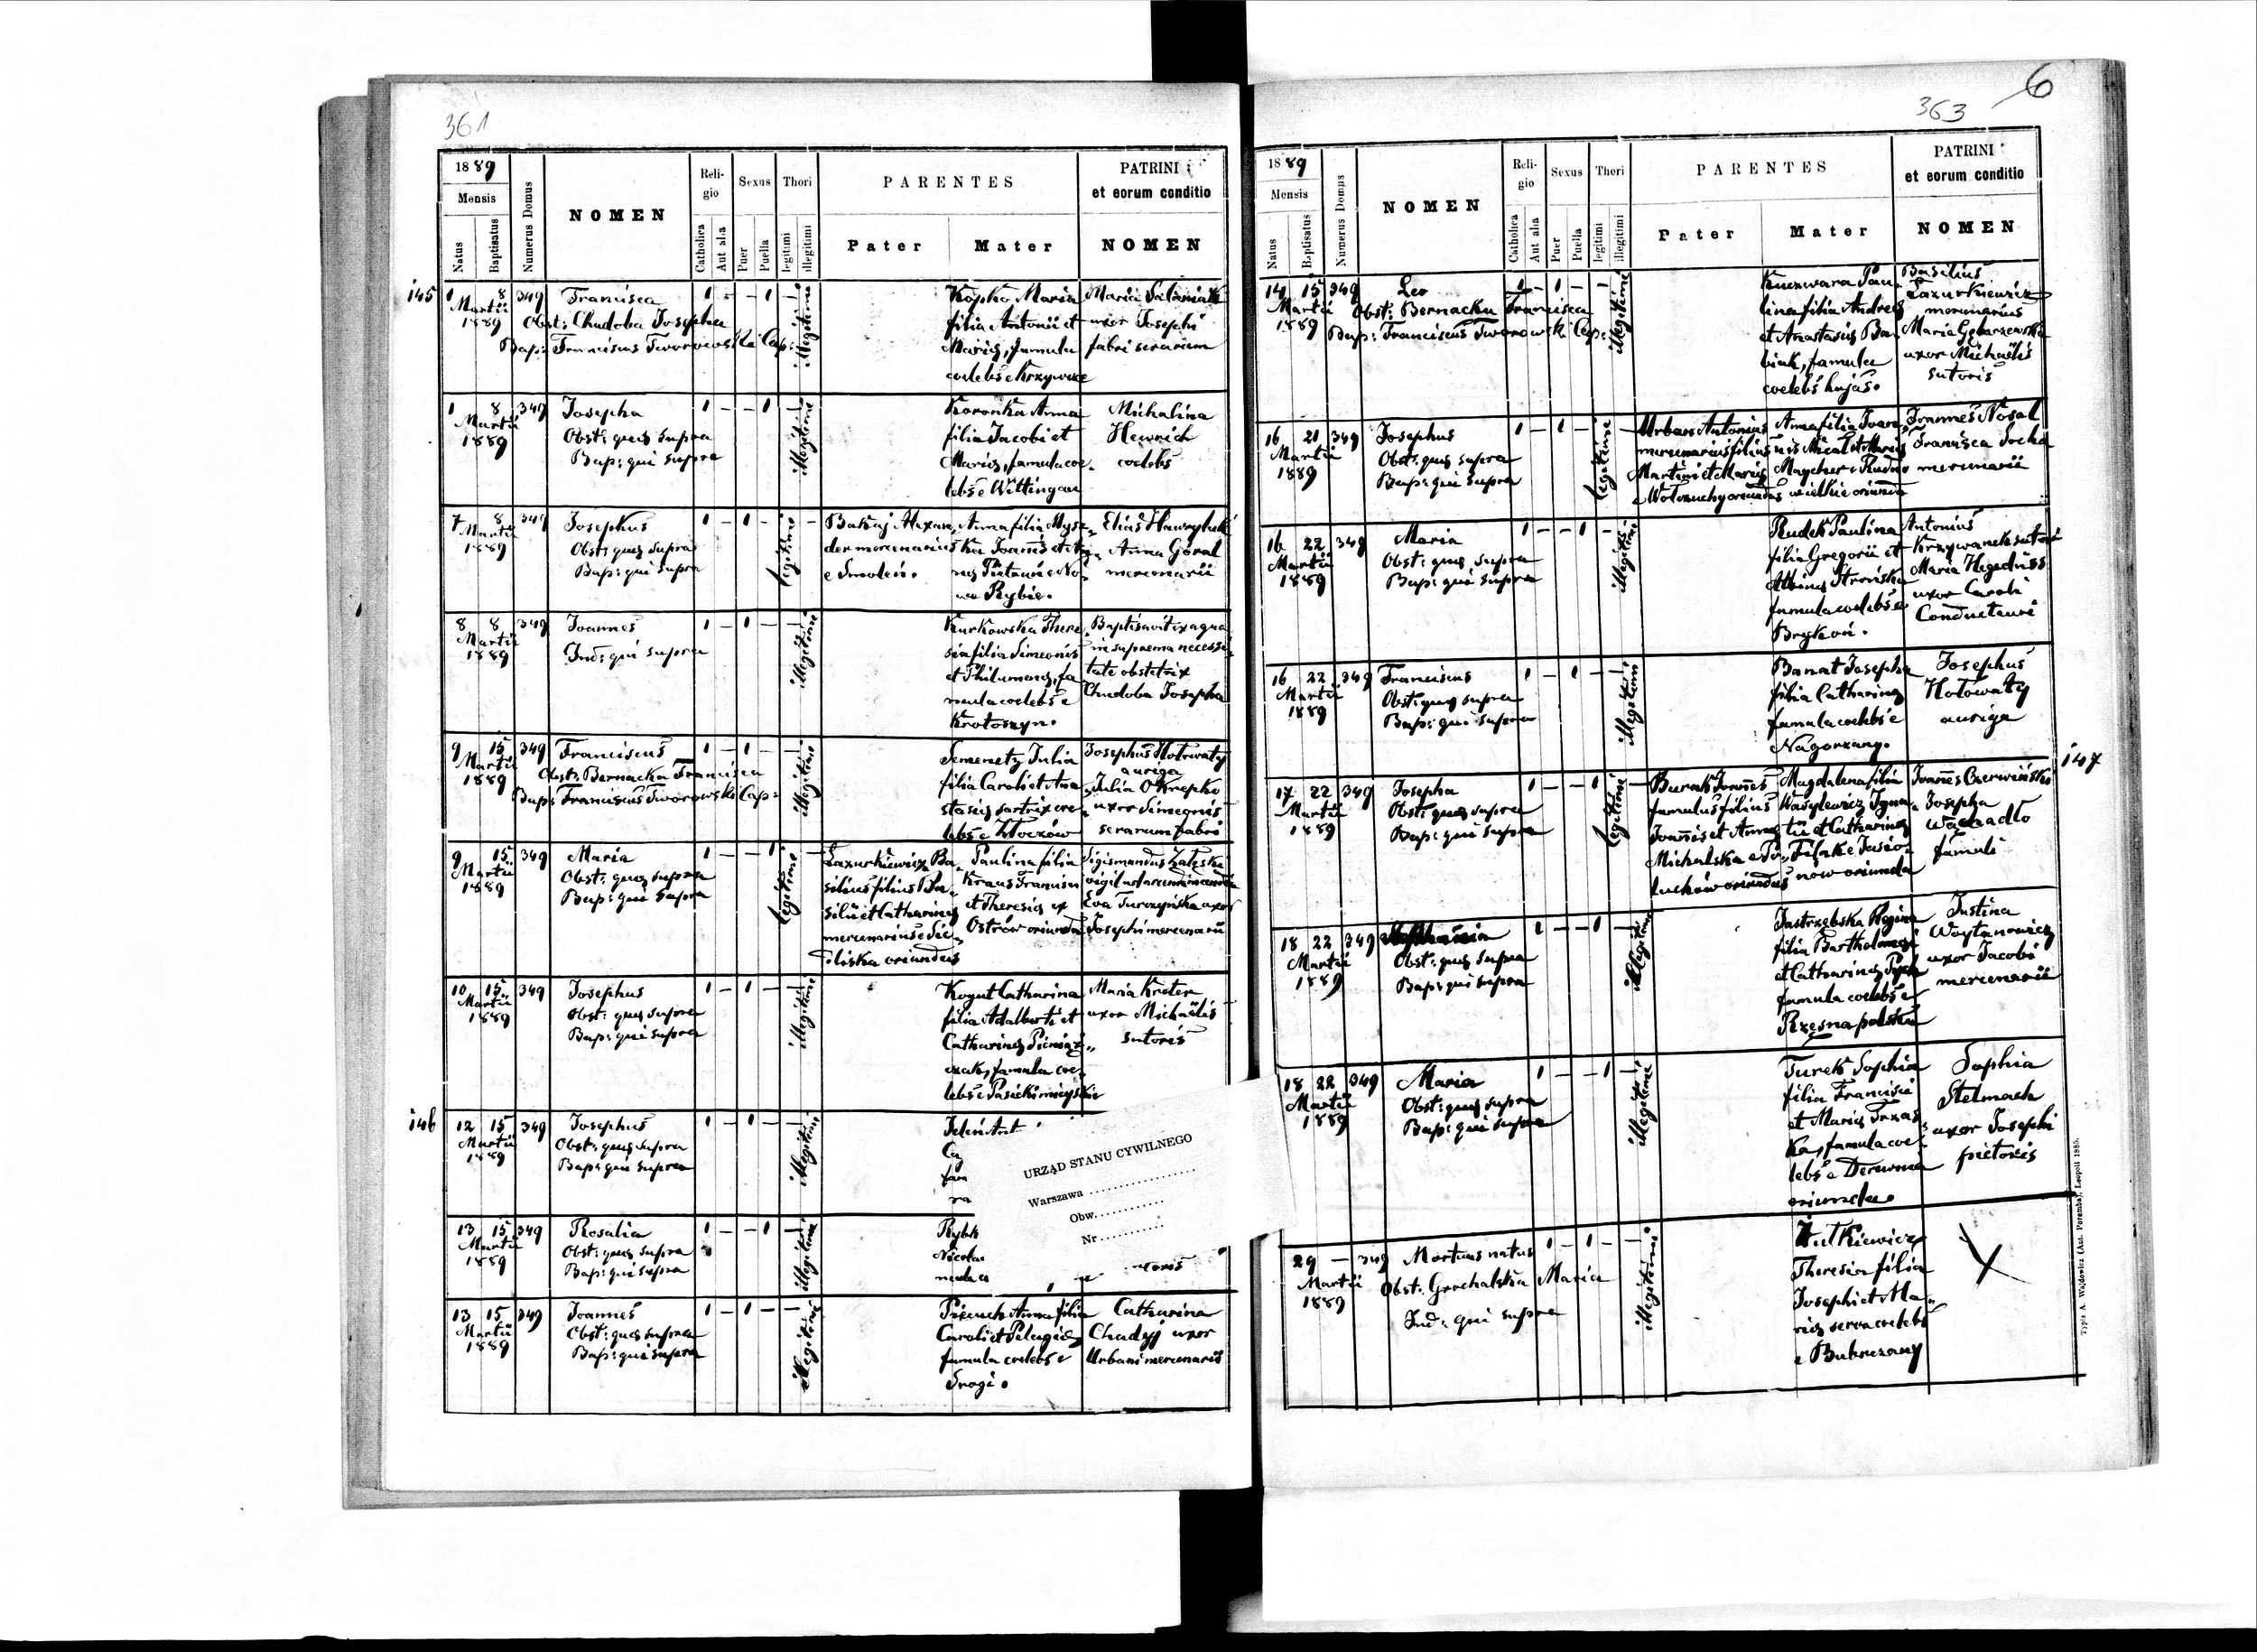 361
1889
Mensis
Natus
Baptisatus
Numerus Domus
NOMEN
Reli-
gio
Catholica
Aut alia
Sexus
Puer
Puella
Thori
legitimi
illegitimi
PARENTES
Pater
Mater
PATRINI
et eorum conditio
NOMEN
145
1 8 349
Martii
1889
Francisca
Obst: Chudoba Josepha
Bap: Franciscus Tworowski Cap:
illegitimi
Kopko Maria
filia Antonii et
Mariæ, famula
coelebs e Krzywcze
Maria
uxor Josephi
fabri serarum
1 8 349
Martii
1889
Josepha
Obst: quæ supra
Bap: qui supra
illegitimi
Koronka Anna
filia Jacobi et
Mariæ, famula coe-
lebs e Wittingau
Michalina
Heinrich
coelebs
7 8 349
Martii
1889
Josephus
Obst: quæ supra
Bap: qui supra
legitimi
der mercenarius
e Smoleń.
wa Rybie.
Elias Hawryluk
Anna Góral
mercenarii
8 8 349
Martii
1889
Joannes
Ind: qui supra
illegitimi
Kurkowska There
sia filia Simeonis
et Philumenæ, fa
mula coelebs e
Krotoszyn.
Baptisavit ex aqua
in suprema necessi
tate obstetrix
Chudoba Josepha
9 15 349
Martii
1889
Franciscus
Obst: Bernacka Francisca
Bap: Franciscus Tworowski Cap:
illegitimi
Semenetz Julia
filia Caroli et Ana
stasiæ sartrix coe
lebs e Złoczów
Josephus Hołowaty
auriga
Julia Okrepko
uxor Simeonis
serarum fabri
9 15 349
Martii
1889
Maria
Obst: quæ supra
Bap: qui supra
legitimi
Łazurkiewicz Ba
silius filius Ba
silii et Catharinæ
mercenarius e Sie
oriundus
Paulina filia
Kraus Francisci
et Theresiæ ex
Ostrów oriunda
Sigismundus Zaleski
Eva Turczyńska uxor
Josephi mercenarii
10 15 349
Martii
1889
Josephus
Obst: quæ supra
Bap: qui supra
illegitimi
Kogut Catharina
filia Adalberti et
Catharinæ Pieniąż
czak, famula coe
lebs e Pasieki miejskie
Maria Kreter
uxor Michaëlis
sutoris
146
12 15 349
Martii
1889
Josephus
Obst: quæ supra
Bap: qui supra
illegitimi
URZĄD STANU CYWILNEGO
Warszawa
Obw.
Nr
13 15 349
Martii
1889
Rosalia
Obst: quæ supra
Bap: qui supra
illegitimi
13 15 349
Martii
1889
Joannes
Obst: quæ supra
Bap: qui supra
illegitimi
Anna filia
Caroli et Pelagiæ
famula coelebs e
Srogi.
Catharina
Chadyj uxor
Urbani mercenarii
6
363
1889
Mensis
Natus
Baptisatus
Numerus Domus
NOMEN
Reli-
gio
Catholica
Aut alia
Sexus
Puer
Puella
Thori
legitimi
illegitimi
PARENTES
Pater
Mater
PATRINI
et eorum conditio
NOMEN
14 15 349
Martii
1889
Leo
Obst: Bernacka Francisca
Bap: Franciscus Tworowski Cap:
illegitimi
Kuczwara Pau
lina filia Andreæ
et Anastasiæ Ba
biak, famula
coelebs hujas.
Basilius
Łazurkiewicz
mercenarius
Maria Gębarzewska
uxor Michaëlis
sutoris
16 21 349
Martii
1889
Josephus
Obst: quæ supra
Bap: qui supra
legitimi
Urban Antonius
mercenarius filius
Martini et Mariæ
Joannes Nosal
Francisca Socha
mercenarii
16 22 349
Martii
1889
Maria
Obst: quæ supra
Bap: qui supra
illegitimi
Rudek Paulina
filia Gregorii et
famula coelebs e
Brykoń.
Antonius
Krzywanek sutor
Maria Hegedüss
uxor Caroli
Conducteuri
16 22 349
Martii
1889
Franciscus
Obst: quæ supra
Bap: qui supra
illegitimi
Banat Josepha
filia Catharinæ
famula coelebs e
Nagorzany.
Josephus
Hołowaty
auriga
147
17 22 349
Martii
1889
Josepha
Obst: quæ supra
Bap: qui supra
legitimi
Burak Joannes
famulus filius
Joannis et Annæ
Michalska e Po
łuchów oriundus
Magdalena filia
Wasylewicz Igna
tii et Catharinæ
Filak e Jasio
now oriunda
Joannes Czerwiński
Josepha
famuli
18 22 349
Martii
1889
Obst: quæ supra
Bap: qui supra
illegitimi
Jastrzębska Regina
filia Bartholomæi
et Catharinæ
famula coelebs e
Rzęsna polska
Justina
Woytanowicz
uxor Jacobi
mercenarii
18 22 349
Martii
1889
Maria
Obst: quæ supra
Bap: qui supra
illegitimi
Turek Sophia
filia Francisci
et Mariæ Trzas
ka, famula coe
lebs e Derewnia
oriunda.
Sophia
Stelmach
uxor Josephi
pictoris
29 — 349
Martii
1889
Mortuus natus
Obst: Grochalska Maria
Ind: qui supra
illegitimi
Żutkiewicz
Theresia filia
Josephi et Ma
riæ serva coelebs
e Bukaczany
Typis A. Wajdowicz (Ant. Poremba), Leopoli 1885.